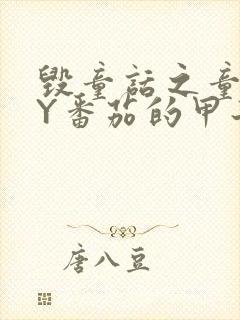 毁童话之童
Y番茄的甲
唐八豆